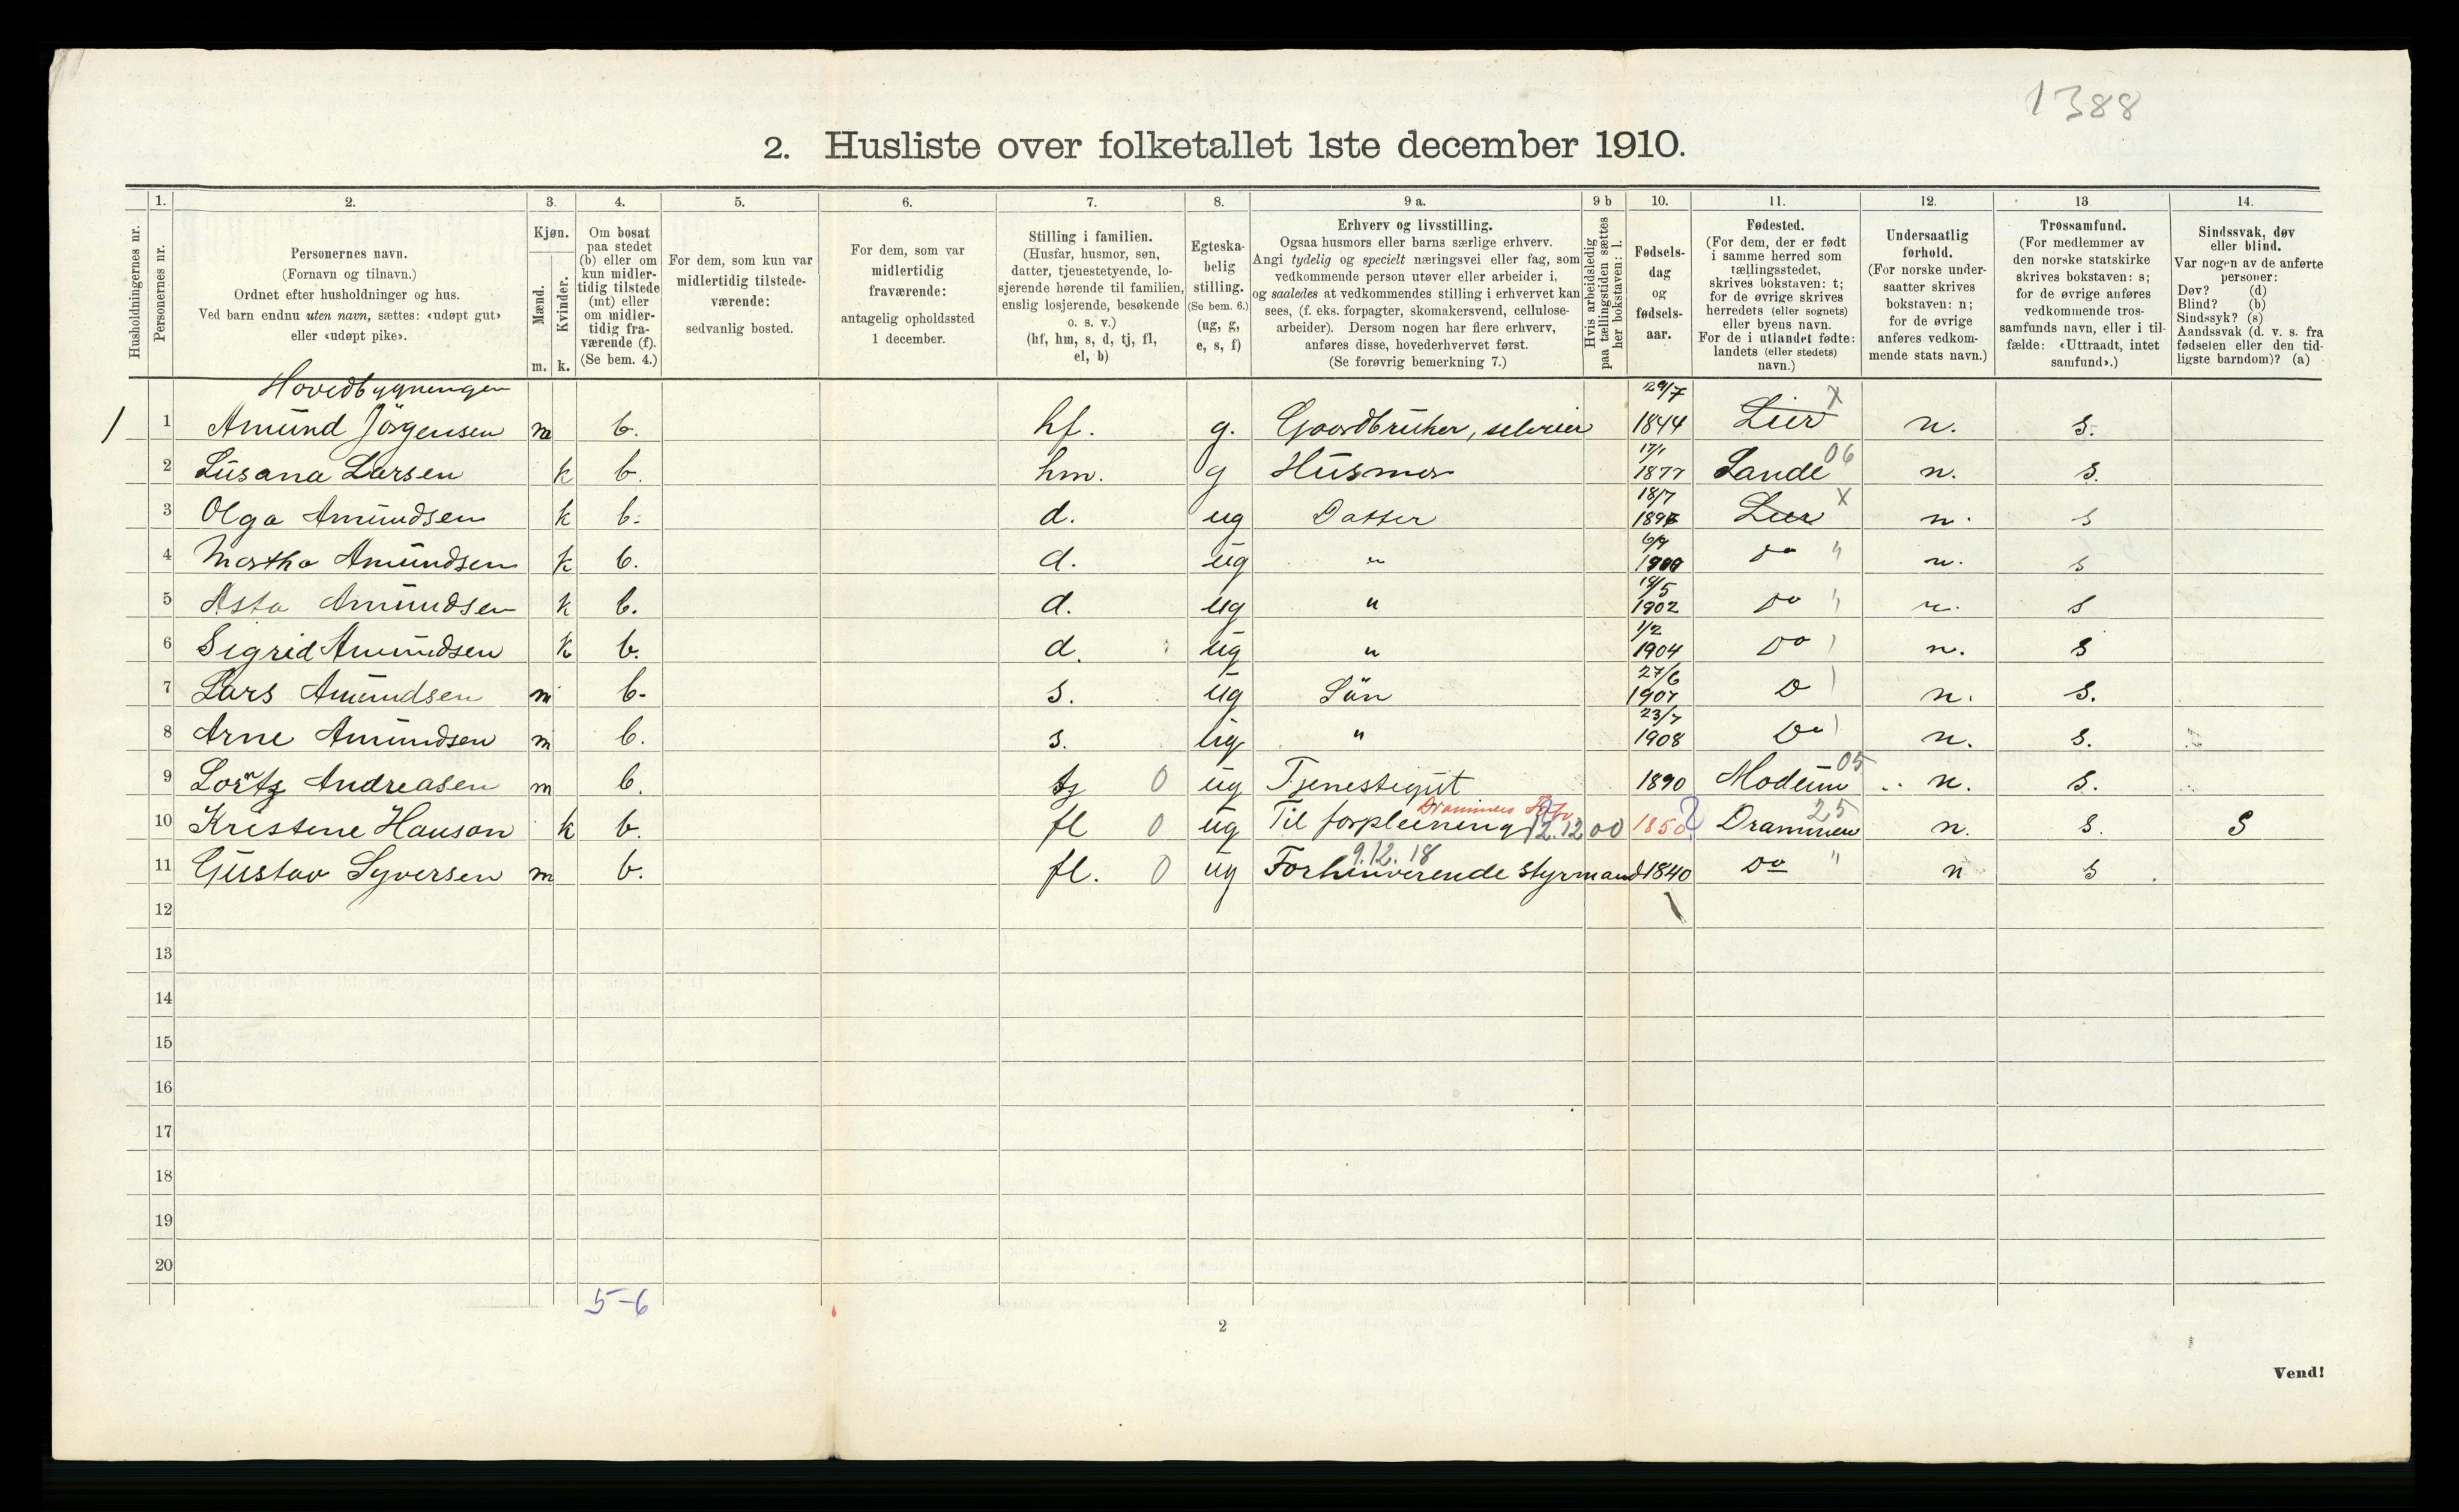 1388
2. Husliste over folketallet 1ste december 1910.
1. 2. 3. 4. 5. 6. 7. 8. 9 a. 9 b 10. 11. 12. 13 14.
Husholdningernes nr.
Personernes nr.
Personernes navn.
(Fornavn og tilnavn.)
Ordnet efter husholdninger og hus.
Ved barn endnu uten navn, sættes: «udøpt gut»
eller «udøpt pike».
Kjøn.
Mænd.
Kvinder.
m. k.
Om bosat
paa stedet
(b) eller om
kun midler-
tidig tilstede
(mt) eller
om midler-
tidig fra-
værende (f).
(Se bem. 4.)
For dem, som kun var
midlertidig tilstede-
værende:
sedvanlig bosted.
For dem, som var
midlertidig
fraværende:
antagelig opholdssted
1 december.
Stilling i familien.
(Husfar, husmor, søn,
datter, tjenestetyende, lo-
sjerende hørende til familien,
enslig losjerende, besøkende
o. s. v.)
(hf, hm, s, d, tj, fl,
el, b)
Egteska-
belig
stilling.
(Se bem. 6.)
(ug, g,
e, s, f)
Erhverv og livsstilling.
Ogsaa husmors eller barns særlige erhverv.
Angi tydelig og specielt næringsvei eller fag, som
vedkommende person utøver eller arbeider i,
og saaledes at vedkommendes stilling i erhvervet kan
sees, (f. eks. forpagter, skomakersvend, cellulose-
arbeider). Dersom nogen har flere erhverv,
anføres disse, hovederhvervet først.
(Se forøvrig bemerkning 7.)
Hvis arbeidsledig
paa tællingstiden sættes
her bokstaven: l.
Fødsels-
dag
og
fødsels-
aar.
Fødested.
(For dem, der er født
i samme herred som
tællingsstedet,
skrives bokstaven: t;
for de øvrige skrives
herredets (eller sognets)
eller byens navn.
For de i utlandet fødte:
landets (eller stedets)
navn.)
Undersaatlig
forhold.
(For norske under-
saatter skrives
bokstaven: n;
for de øvrige
anføres vedkom-
mende stats navn.)
Trossamfund.
(For medlemmer av
den norske statskirke
skrives bokstaven: s;
for de øvrige anføres
vedkommende tros-
samfunds navn, eller i til-
fælde: «Uttraadt, intet
samfund».)
Sindssvak, døv
eller blind.
Var nogen av de anførte
personer:
Døv? (d)
Blind? (b)
Sindssyk? (s)
Aandssvak (d. v. s. fra
fødselen eller den tid-
ligste barndom)? (a)
Hovedbygningen
1 1 Amund Jörgensen m b. hf. g. Gaardbruker, selveier 29/7 1844 Lier X n. s.
2 Susana Larsen k b. hm. g Husmor 17/1 1877 Sande 06 n. s.
3 Olga Amundsen k b. d. ug Datter 18/7 Lier X n. s
4 Martha Amundsen k b. d. ug " 1900 Do " n. s
5 Asta Amundsen k b. d. ug " 19/5 1902 Do " n. s
6 Sigrid Amundsen k b. d. ug " 1/2 1904 Do n. s
7 Lars Amundsen m b. s. ug Sön 27/6 1907 D n. s.
8 Arne Amundsen m b. s. ug " 23/7 1908 Do n. s.
9 Andreasen m b. tj 0 ug Tjenestegut 1890 Modum 05 n. s.
10 Kristine Hanson k b. fl 0 ug Til forpleining Drammens 12.12 00 1850 ? Drammen 25 n. s. S
11 Gustav Syversen m b. fl. 0 ug Forhenverende styrmand 9.12.18 1840 Do " n s
12
13
14
15
16
17
18
19
20
5-6
2
Vend!